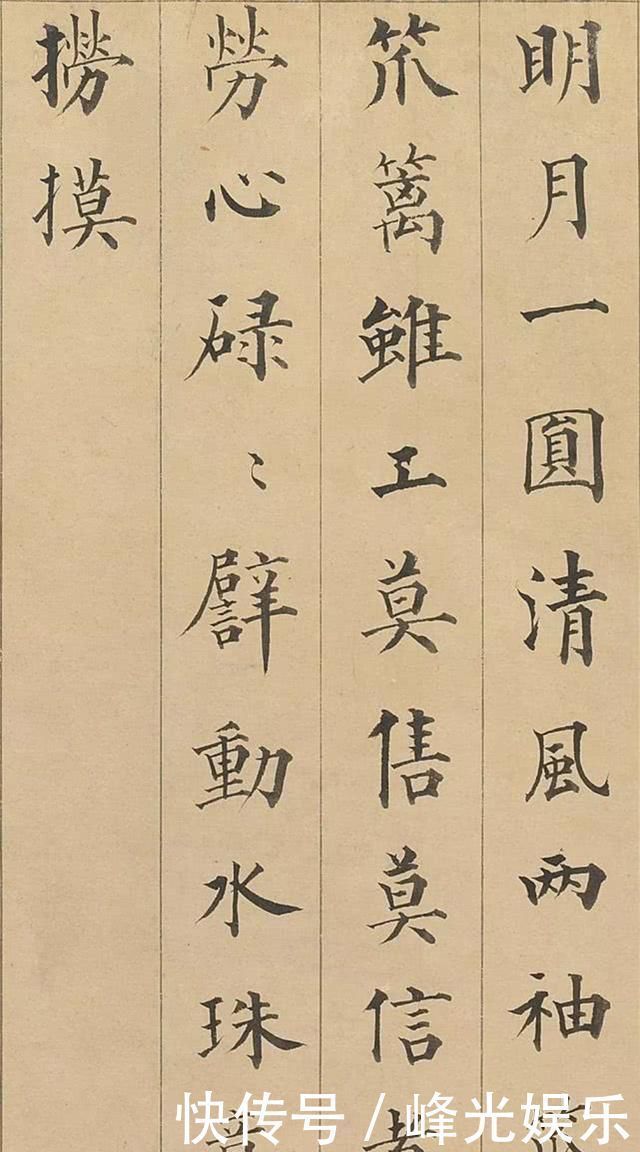 明月一圓清風两袖
笊篱雖工莫售莫信
勞心碌〻譬動水珠
撈摸
快传号 / 峰光娱乐